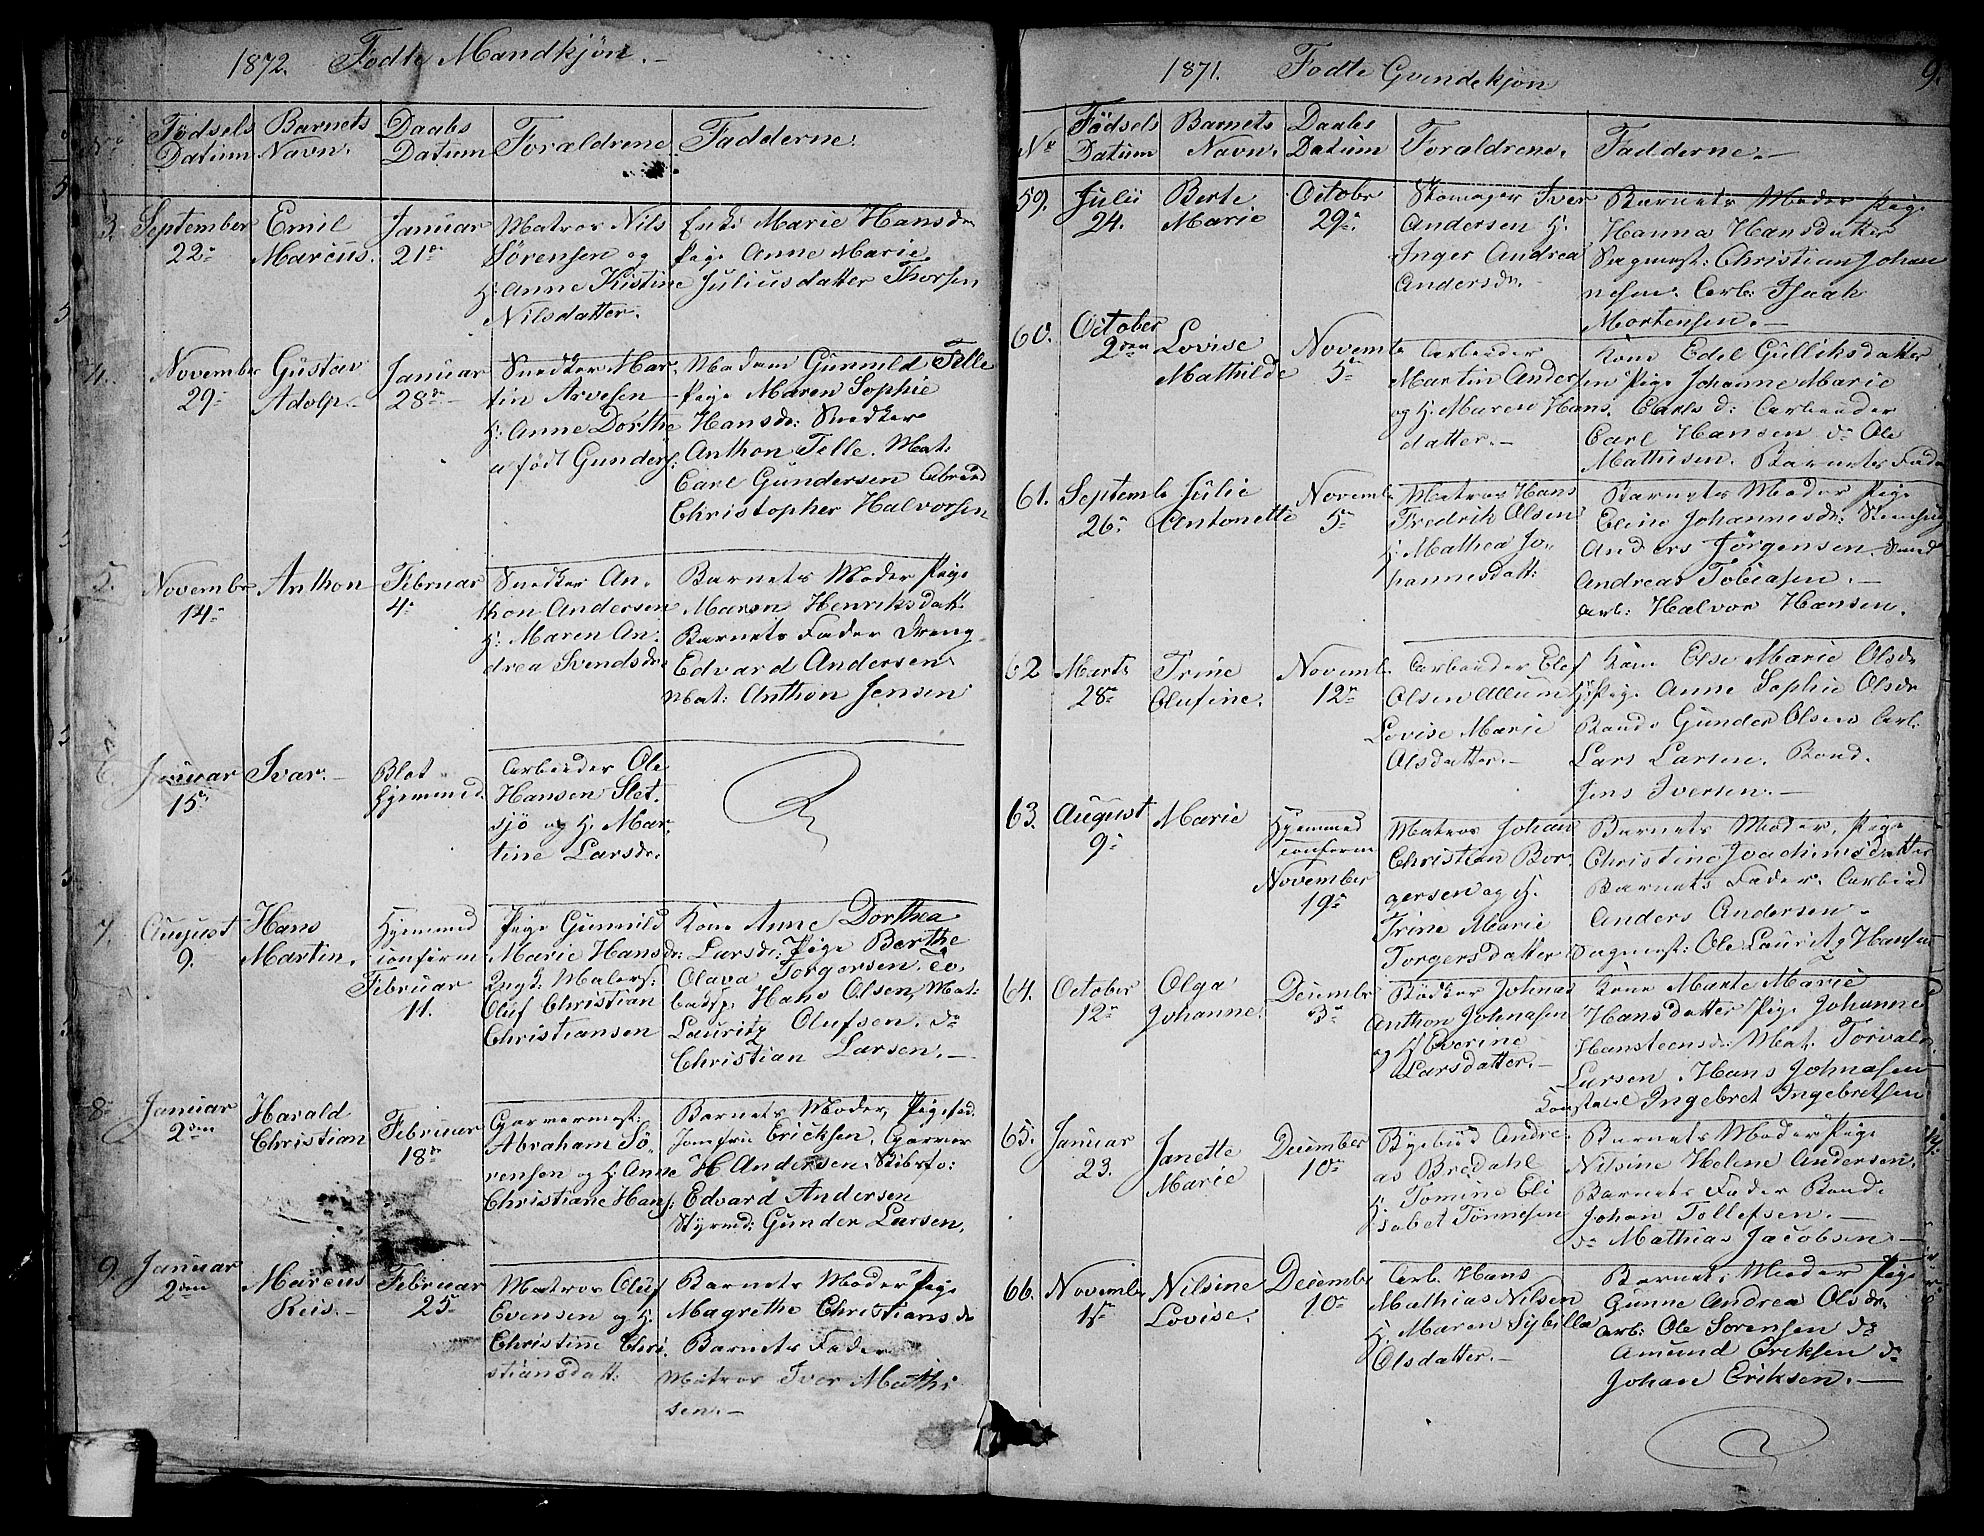 1872. Fødte Mandkjøn.
No Fødsels Datum Barnets Navn. Daabs Datum Foraldrene Fadderne.
3. September 22de Emil Marcus. Januar 21de
Matros Nils
Sørensen og
H: Anne Kistine
Nilsdatter.
Enke Marie Hansdr
Pige Anne Marie
Juliusdatter Thorsen
4. November 29de Gustav Adolp. Januar 28de
Snedker Mar-
tin Arvesen
H: Anne Dorthe
a født Gunders:
Madam Gunnild Telle
Pige Maren Sophie
Hansdr: Snedker
Anthon Telle. Mat:
Carl Gundersen Arbeid
Christopher Halvorsen
5. Novembr 14de Anthon Februar 4de
Snedker An-
thon Andersen
H: Maren An-
drea Svendsdr.
Barnets Moder Pige
Maren Henriksdatt:
Barnets Fader Dreng
Edvard Andersen
Mat: Anthon Jensen
6. Januar 15de Ivar. Bl̄ot hjemmed.
Arbeider Ole
Hansen Slet-
sjö og H. Mar-
tine Larsdr.
7. August 9. Hans Martin. Hjemmed confirm Februar 11.
Pige Gunnild
Marie Hansdr:
Ungk: Malers:
Oluf Christian
Christiansen
Kone Anne Dorthea
Larsdr: Pige Berthe
Olava Torgersen.
Hans Olsen, Mat:
Lauritz Olufsen. do
Christian Larsen.
8. Januar 2den Harald Christian Februar 18de
Garvermest:
Abraham Sö-
rensen og H: Anne
Christiane Hans:
Barnets Moder, Pige
Jomfru Ericksen. Garver
H Andersen. Skibsfø:
Edvard Andersen
Styrmd: Gunder Larsen.
9. Januar 2den Marcus Reis. Februar 25de
Matros Oluf
Evensen og H.
Christine Chri-
stiansdatt:
Barnets Moder Pige
Magrethe Christiansdr
Barnets Fader
Matros Iver Mathi
sen.
1871. Fødte Qvindekjøn 9.
No Fødsels Datum Barnets Navn. Daabs Datum Foraldrene. Fadderne.
59. Julii 24. Berte Marie Octobr 29de
Skomager Iver
Andersen H.
Inger Andrea
Andersdr.
Barnets Moder Pige
Hanna Hansdatter
Sagmest: Christian Johan
nesen. Arb: Isaak
Mortensen.
60. October 2den Lovise Mathilde Novembr 5te
Arbeider
Martin Ander
og H. Maren Hans.
datter.
Kone Edel Gulliksdatter
sen Pige Johanne Marie
Carlsd: Arbeider
Carl Hansen do Ole
Mathisen. Barnets Fader
61. Septemb 26de Julie Antonette Novemb 5te
Matros Hans
Fredrik Olsen
H. Mathea Jo-
hannesdatt:
Barnets Moder Pige
Eline Johannesdr:
Anders Jørgensen
Andreas Tobiasen.
Arb: Halvor Hansen.
62 Marts 28de Trine Olufine. Novemb 12te
Arbeider Elef
Olsen Allum
Lovise Marie
Olsdatter.
Kone Else Marie Olsdr
H: Pige Anne Sophie Olsdr
Bonde Gunder Olsen Arb:
Lars Larsen. Bond.
Jens Iversen.
63. August 9de Marie Hjemmed confirm November 19de
Matros Johan
Christian Bor-
gersen og H.
Trine Marie
Torgersdatter
Barnets Moder, Pige
Christine Joachimsdatter
Barnets Fader. Arbeid
Anders Andersen
Sagmest: Ole Lauritz Hansen
64. October 12te Olga Johanne. Decembr 3de
Bødker Johnas
Anthon Johnasen
og H Everine
Larsdatter.
Kone Marte Marie
Hansdatter Pige Johanne
Hansteensdr: Mat: Torvald
Larsen. Hans Johnasen
Konstabel Ingebret Ingebretsen
65. Januar 23. Janette Marie December 10de
Bygebud Andre-
as Bredahl
H Tomine Eli
sabet Tønnesen
Barnets Moder Pige
Nilsine Helene Andersen.
Barnets Fader Bond.
Johan Tollefsen.
do Mathias Jacobsen.
66. Novembr 15de Nilsine Lovise. Decembr 10de
Arb. Hans
Mathias Nilsen
H. Maren Sybilla
Olsdatter.
Barnets Moder Pige
Gunne Andrea Olsdr.
Arb: Ole Sorensen do
Amund Eriksen do
Johan Eriksen.